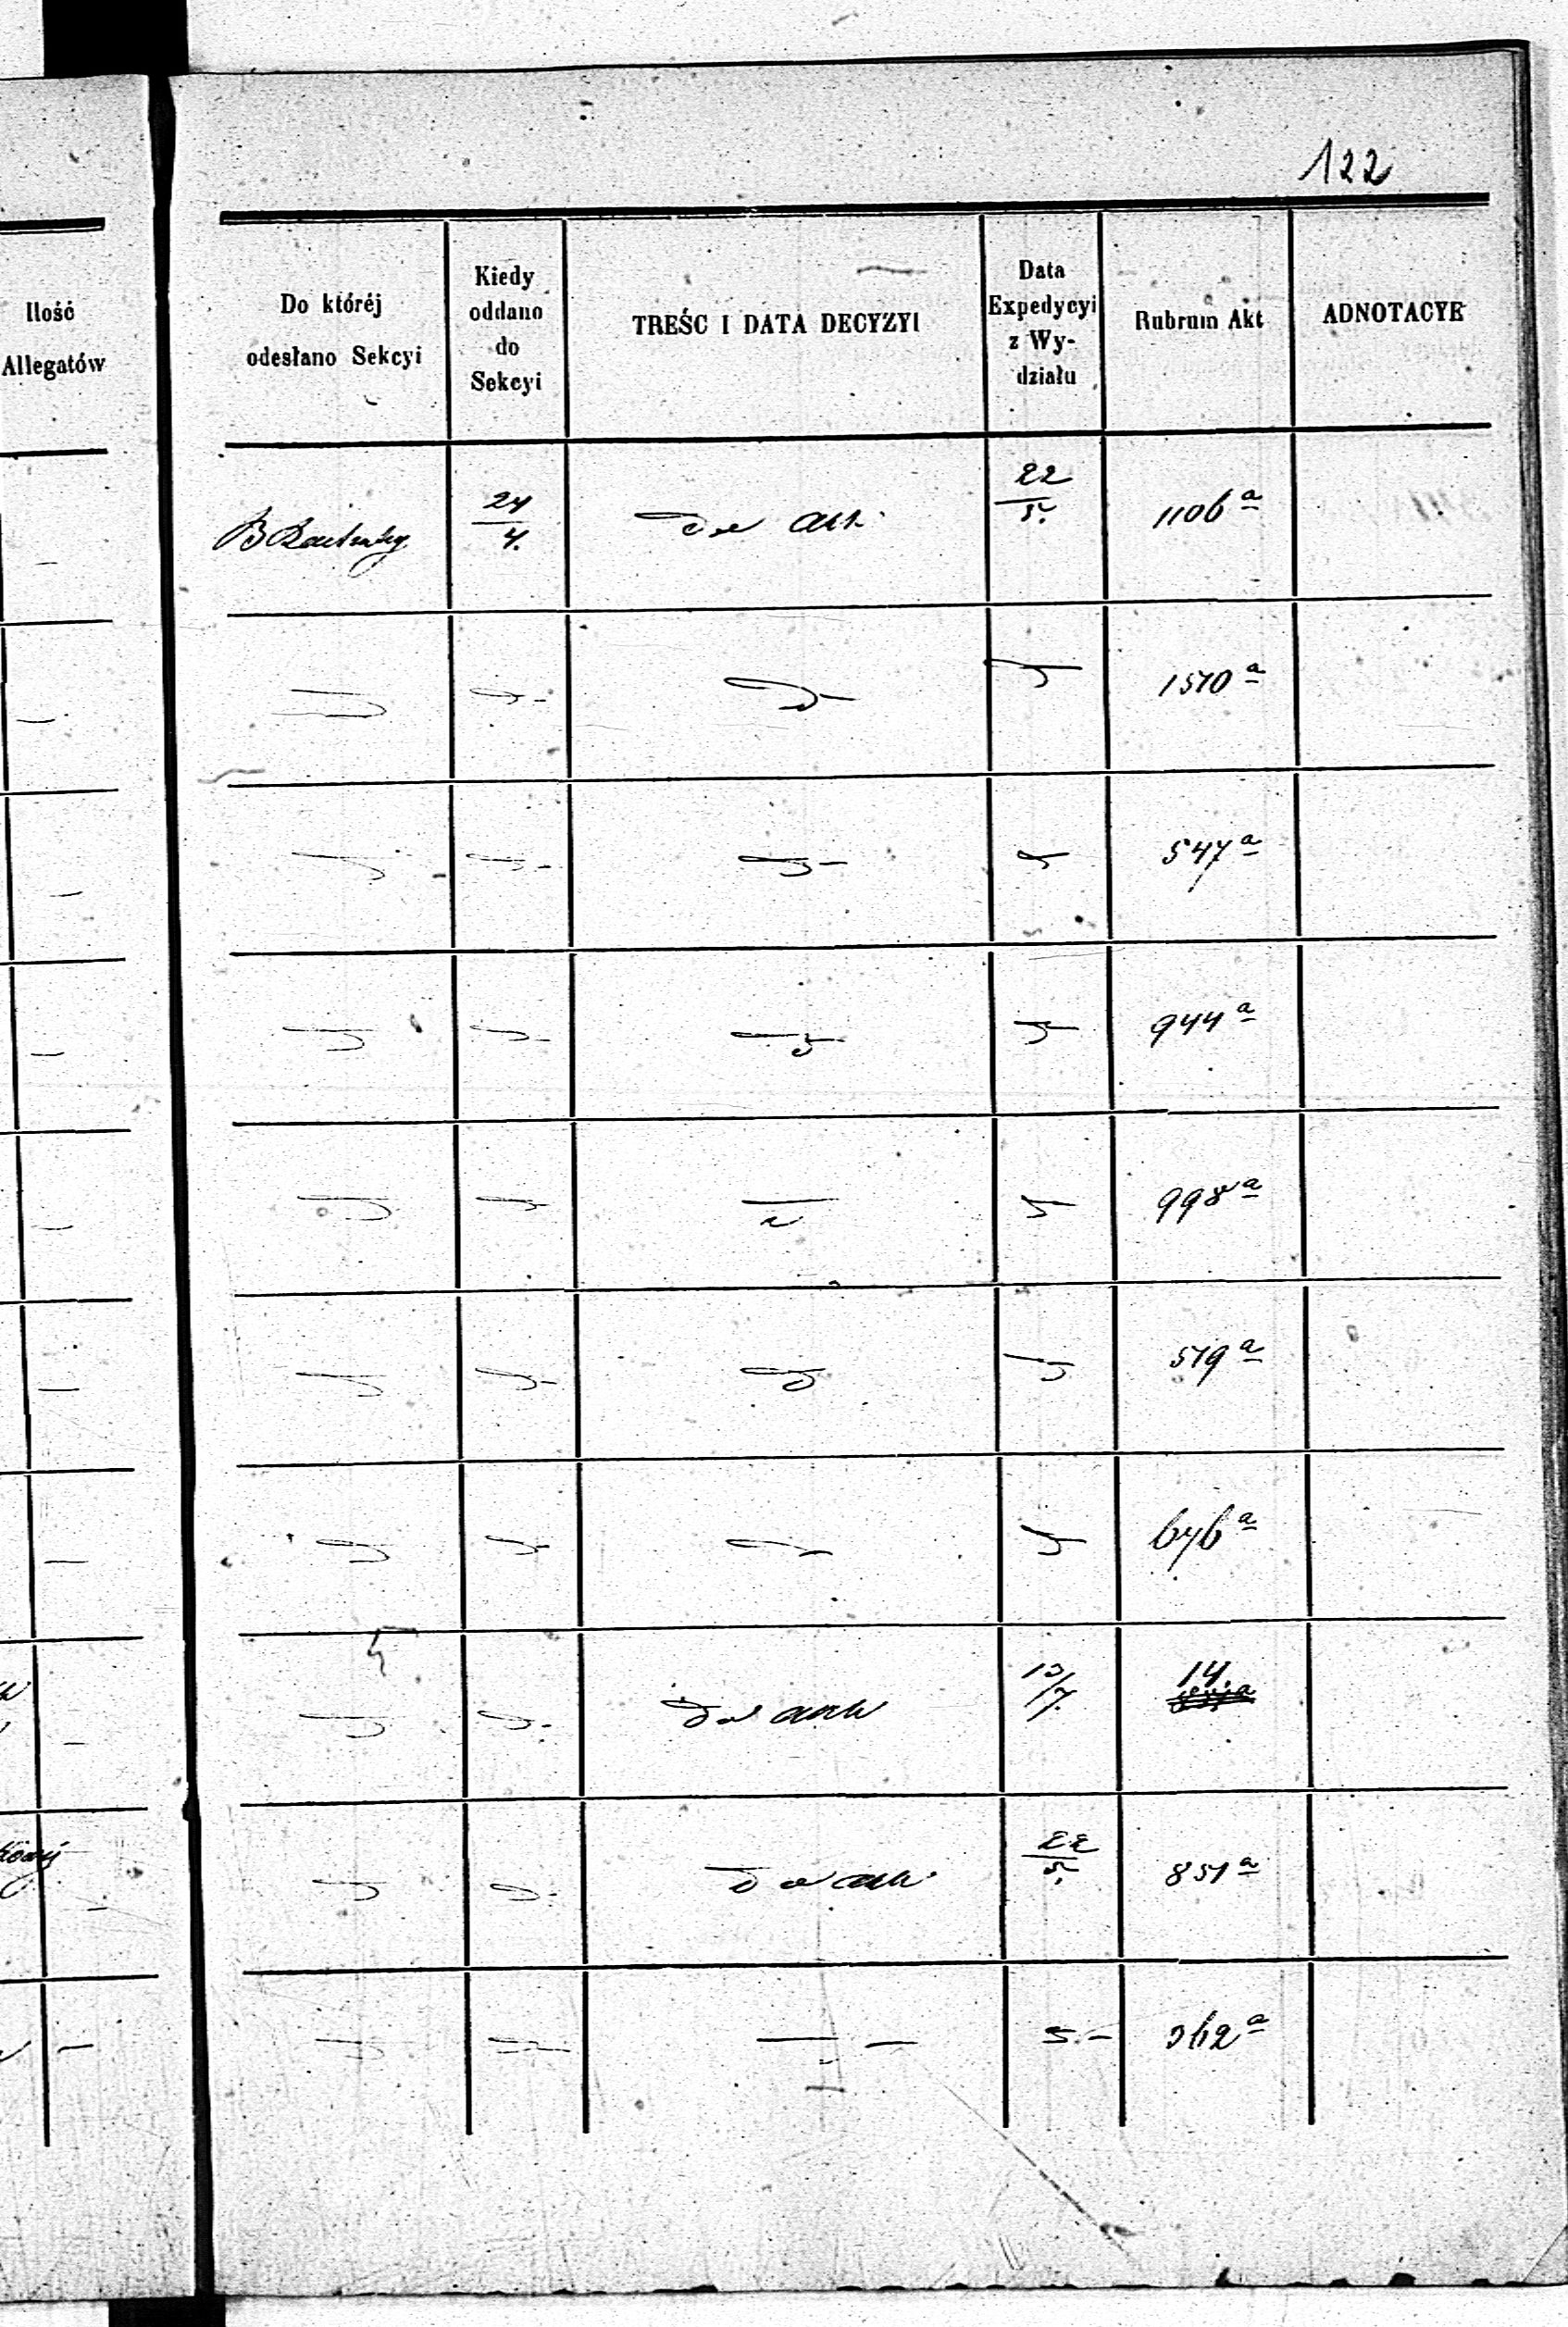 122
Ilość
Allegatów
Do któréj
odesłano Sekcyi
Kiedy
oddano
do
Sekcyi
TREŚC I DATA DECYZYI
Data
Expedycyi
z Wy-
działu
Rubrum Akt
ADNOTACYE
24/4. do Akt. 22/5. 1106 a
1510 a
547 a
944 a
998 a
519 a
646 a
do akt 10/7. 14
do akt. 22/5. 851 a
362 a